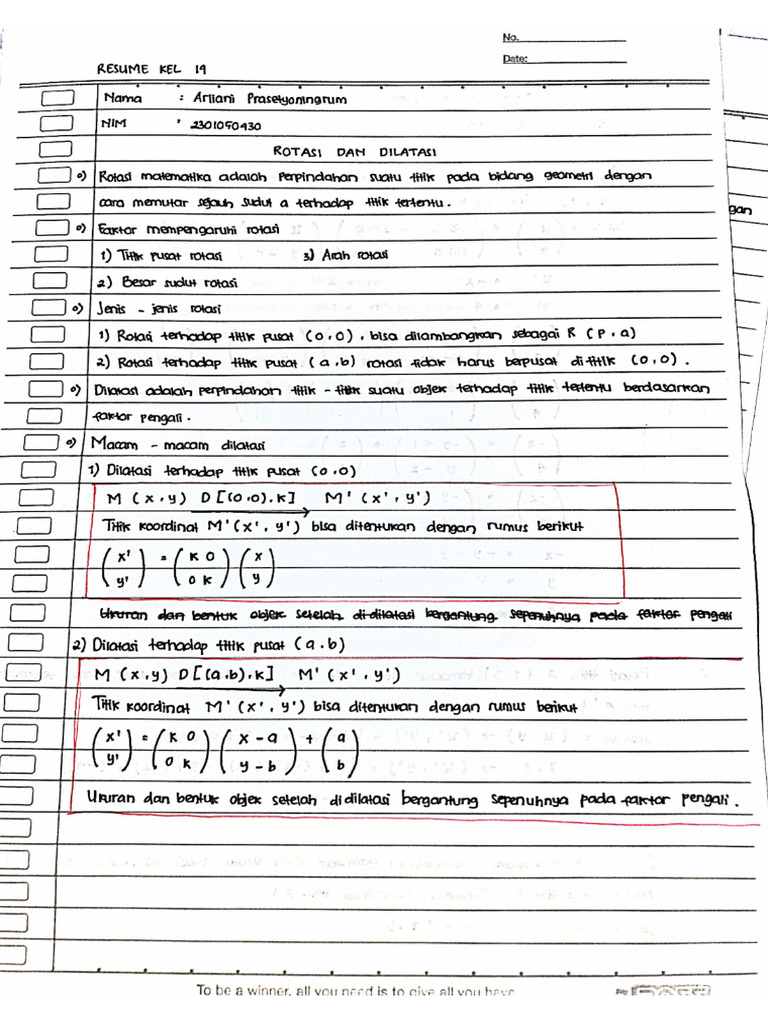 No.
Date:
RESUME KEL 19
Nama : Artiani Prasetyoningrum
NIM : 2301050430
ROTASI DAN DILATASI
o) Rotasi matematika adalah perpindahan suatu titik pada bidang geometri dengan
cara memutar sejauh sudut a terhadap titik tertentu.
o) Faktor mempengaruhi rotasi
1) Titik pusat rotasi 3) Arah rotasi
2) Besar sudut rotasi
o) Jenis - jenis rotasi
1) Rotasi terhadap titik pusat (0,0), bisa dilambangkan sebagai R (P, a)
2) Rotasi terhadap titik pusat (a.b) rotasi tidak harus berpusat di titik (0,0).
o) Dilatasi adalah perpindahan titik - titik suatu objek terhadap titik tertentu berdasarkan
faktor pengali.
o) Macam - macam dilatasi
1) Dilatasi terhadap titik pusat (0,0)
M (x,y) D[(0,0).k] M' (x', y')
Titik koordinat M'(x', y') bisa ditentukan dengan rumus berikut
(x') = (k 0) (x)
(y') (0 k) (y)
Ukuran dan bentuk objek setelah di dilatasi bergantung sepenuhnya pada faktor pengali
2) Dilatasi terhadap titik pusat (a.b)
M (x,y) D[(a.b).k] M' (x', y')
Titik koordinat M'(x', y') bisa ditentukan dengan rumus berikut
(x') = (k 0) (x - a) + (a)
(y') (0 k) (y - b) (b)
Ukuran dan bentuk objek setelah di dilatasi bergantung sepenuhnya pada faktor pengali.
To be a winner, all you need is to give all you have
gan